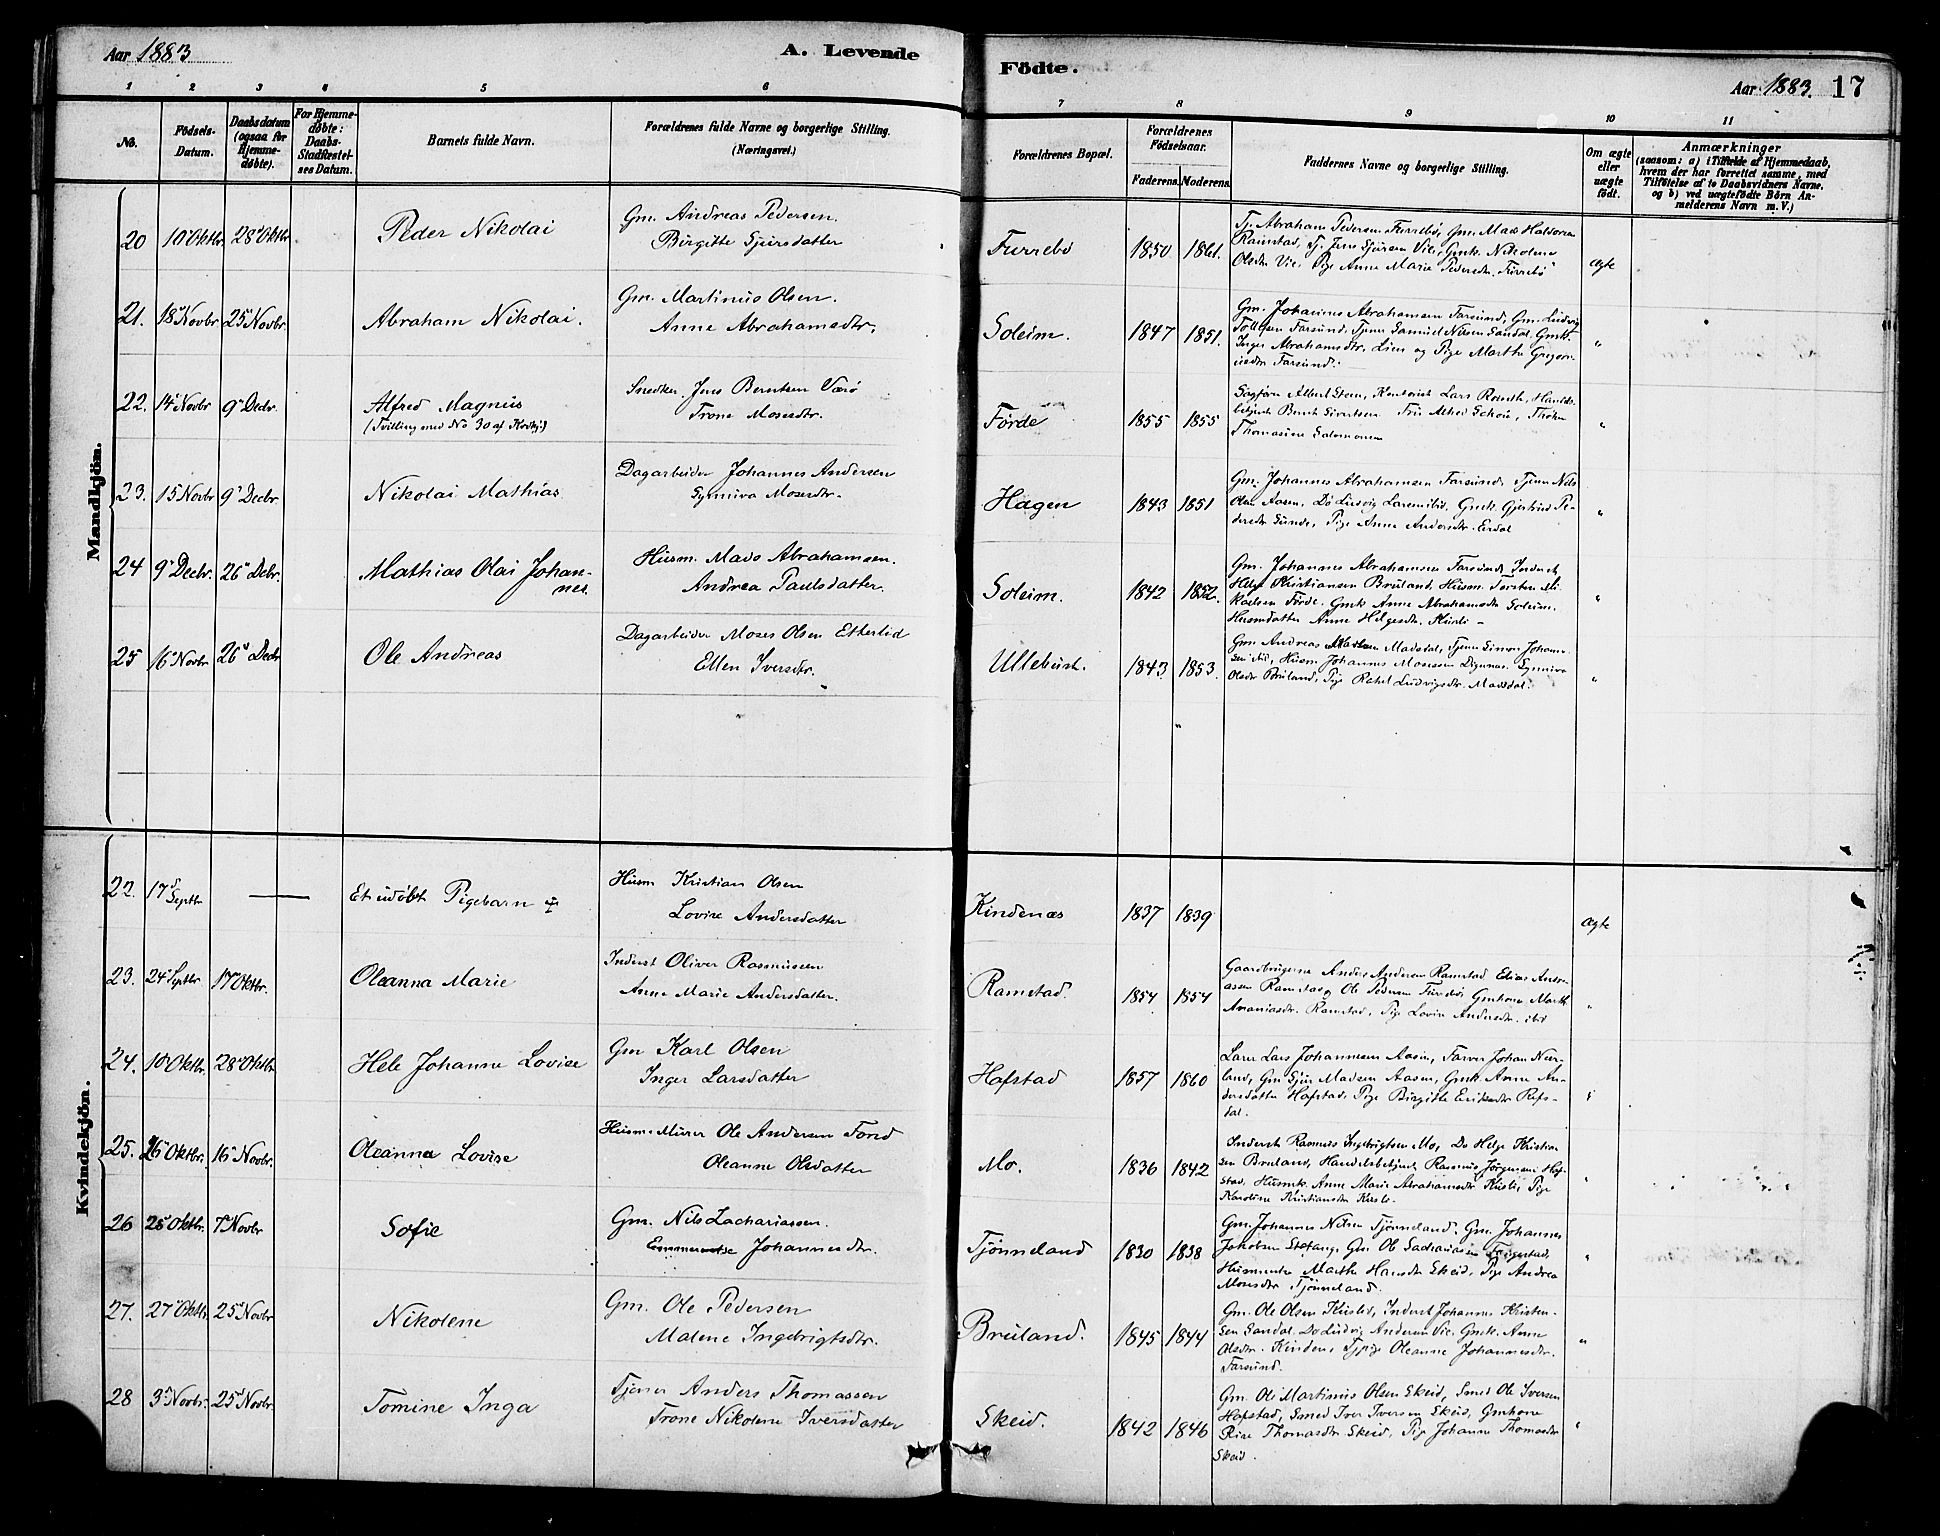 Aar 1883
A. Levende
Födte.
Aar 1883. 17
1 2 3 4 5 6 7 8 9 10 11
No.
Födsels-
Datum.
Daabsdatum
(ogsaa for
Hjemme-
døbte).
For Hjemme-
døbte:
Daabs-
Stadfæstel-
ses Datum.
Barnets fulde Navn.
Forældrenes fulde Navne og borgerlige Stilling.
(Næringsvei.)
Forældrenes Bopæl.
Forældrenes
Födselsaar.
Faderens. Moderens.
Faddernes Navne og borgerlige Stilling.
Om ægte
eller
uægte
født.
Anmærkninger
(saasom: a) i Tilfælde af Hjemmedaab,
hvem der har forrettet samme, med
Tilföielse af to Daabsvidners Navne,
og b) ved uægtefödte Börn An-
melderens Navn m. V.)
Mandkjön.
20 10 Oktbr. 28 Oktbr Peder Nikolai
Gm. Andreas Pedersen.
Birgitte Sjursdatter
Furrebø 1850 1861.
Tj. Abraham Pedersen Furrebø, Gm. Mads Halvorsen
Ramstad, Tj. Jens Sjursen Vie, Gmk. Nikoline
Olsdtr Vie, Pige Anne Marie Pedersdtr. Furrebø
ægte
21. 18 Novbr 25 Novbr Abraham Nikolai.
Gm. Martinus Olsen.
Anne Abrahamsdtr.
Soleim. 1847 1851.
Gm. Johannes Abrahamsen Farsund, Gm. Ludvig
Tollefsen Farsund, Tjener Samuel Nilsen Sandal. Gmk.
Inger Abrahamsdtr. Lien og Pige Marthe Gregori-
usdtr Farsund.
"
22. 14 Novbr 9 Decbr. Alfred Magnus
(Tvilling med No 30 af Kvdkj.)
Snedker Jens Berntsen Værø
Trone Mosesdtr.
Førde 1855 1855
Sagfører Albert Steen, Kontorist Lars
Thomasine Salomonsen
"
23. 15 Novbr 9 Decbr Nikolai Mathias
Dagarbeider Johannes Andersen
Synniva Mosesdtr.
Hagen 1843 1851
Gm. Johannes Abrahamsen Farsund, Tjener Nils
Olsen Aasen, Do Ludvig Gmk. Gjertrud Pe-
dersdtr Sunde, Pige Anne Andersdtr. Erdal
"
24 9 Decbr. 26 Debr. Mathias Olai Johan-
nes.
Husm. Mads Abrahamsen.
Andrea Paulsdatter.
Soleim. 1842 1852.
Gm. Johannes Abrahamsen Farsund, Inderst
Helge Kristiansen Bruland, Husm. Torsten Mi-
kaelsen Førde. Gmk Anne Abrahamsdtr Soleim.
Husmdatter Anne Helgesdtr. Husli -
"
25 16 Novbr 26 Decbr Ole Andreas
Dagarbeider Moses Olsen Etterlid
Ellen Iversdtr.
Ullebust. 1843 1853.
Gm. Andreas Madsen Madsdal, Tjener Simon Johann-
sen Husm. Johannes Mosesen Digernes. Synniva
Olsdtr Bruland, Pige Rakel Ludvigsdtr. Madsdal.
"
Kvindekjön.
22. 17 Septbr — Et udøbt Pigebarn ‡
Husm Kristian Olsen
Lovise Andersdatter
Kindenæs 1837 1839
ægte
23. 24 Septbr 17 Oktbr. Oleanna Marie
Inderst Oliver Rasmussen
Anne Marie Andersdatter.
Ramstad. 1854 1854
Gaardbrugerne Anders Andersen Ramstad, Elias Anani-
assen Ramstad, Ole Pedersen Furrebø, Gmkone Marthe
Ananiasdtr. Ramstad, Pige Lovise Andersdtr. ibid
"
24. 10 Oktbr. 28 Oktbr Hele Johanne Lovise
Gm Karl Olsen
Inger Larsdatter
Hafstad 1857 1860
Lærer Lars Johannesen Aasen, Farver Johan
land, Gm Sjur Madsen Aasen, Gmk. Anne An-
dersdatter Hafstad, Pige Birgitte Eriksdtr Refs-
dal.
"
25. 26 Oktbr. 16 Novbr. Oleanna Lovise
Husm. Murer Ole Andersen Fond
Oleanne Olsdatter
Mo. 1836 1842
Inderst Rasmus Ingebrigtsen Mo, Do Helge Kristian-
sen Bruland, Handelsbetjent Rasmus Jørgensen Haf-
stad, Husmk. Anne Marie Abrahamsdtr Husli, Pige
Karoline Kristiansdtr Husli.
"
26 25 Oktbr. 7 Novbr Sofie
Gm. Nils Zachariassen.
Emmerentse Johannesdtr.
Tjønneland 1830 1838
Gm. Johannes Nilsen Tjønneland. Gm. Johannes
Jakobsen Gm Ole Sachariasen
Marthe Hansdtr Skeid, Pige Andrea
Mosesdtr Tjønneland.
"
27. 27 Oktbr 25 Novbr Nikolene
Gm. Ole Pedersen
Malene Ingebrigtsdtr.
Bruland. 1845 1844
Gm. Ole Olsen Husli, Inderst Johannes Kristen-
sen Sandal. Do Ludvig Andersen Vie. Gmk. Anne
Olsdtr. Pige Oleanne Johannesdtr.
Farsund.
"
28 3 Novbr. 25 Novbr. Tomine Inga
Tjener Anders Thomassen
Trone Nikolene Iversdatter
Skeid. 1842 1846
Gm. Ole Martinus Olsen Skeid, Smed Ole Iversen
Hafstad, Smed Iver Iversen Skeid, Gmkone
Rise Thomasdtr Skeid, Pige Johanne Thomasdtr
Skeid.
"